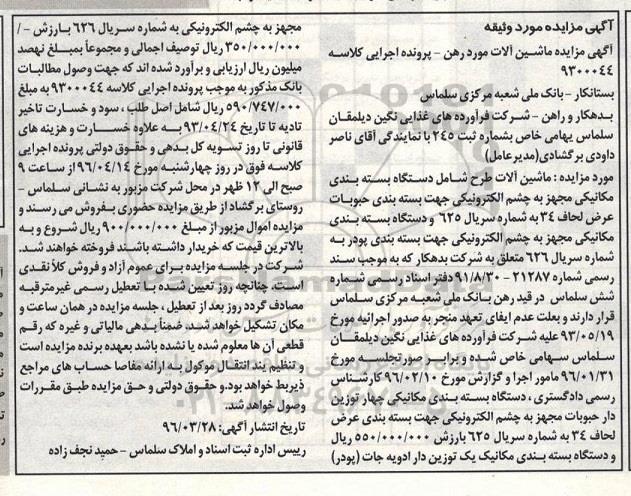 آگهی مزایده مورد وثیقه
آگهی مزایده ماشین آلات مورد رهن - پرونده اجرایی کلاسه
۹۳۰۰۰۴۴
بستانکار - بانک ملی شعبه مرکزی سلماس
بدهکار و راهن - شرکت فرآورده های غذایی نگین دیلمقان
سلماس یهامی خاص بشماره ثبت ۲۴۵ با نمایندگی آقای ناصر
داودی برگشادی(مدیرعامل)
مورد مزایده : ماشین آلات طرح شامل دستگاه بسته بندی
مکانیکی مجهز به چشم الکترونیکی جهت بسته بندی حبوبات
عرض لحاف ۳۴ به شماره سریال ۶۲۵ و دستگاه بسته بندی
مکانیکی مجهز به چشم الکترونیکی جهت بسته بندی پودر به
شماره سریال ۶۲۶ متعلق به شرکت بدهکار که به موجب سند
رسمی شماره ۲۱۲۸۷ - ۹۱/۸/۳۰ دفتر اسناد رسمی شماره
شش سلماس در قید رهن بانک ملی شعبه مرکزی سلماس
قرار دارند و بعلت عدم ایفای تعهد منجر به صدور اجرائیه مورخ
۹۳/۰۵/۱۹ علیه شرکت فرآورده های غذایی نگین دیلمقان
سلماس سهامی خاص شده و برابر صورتجلسه مورخ
۹۶/۰۱/۳۱ مامور اجرا و گزارش مورخ ۹۶/۰۲/۱۰ کارشناس
رسمی دادگستری ، دستگاه بسته بندی مکانیکی چهار توزین
دار حبوبات مجهز به چشم الکترونیکی جهت بسته بندی عرض
لحاف ۳۴ به شماره سریال ۶۲۵ بارزش ۵۵۰/۰۰۰/۰۰۰ ریال
و دستگاه بسته بندی مکانیک یک توزین دار ادویه جات (پودر)
مجهز به چشم الکترونیکی به شماره سریال ۶۲۶ بارزش -/
۳۵۰/۰۰۰/۰۰۰ ریال توصیف اجمالی و مجموعاً بمبلغ نهصد
میلیون ریال ارزیابی و برآورد شده اند که جهت وصول مطالبات
بانک مذکور به موجب پرونده اجرایی کلاسه ۹۳۰۰۰۴۴ به مبلغ
۵۹۰/۷۴۷/۰۰۰ ریال شامل اصل طلب ، سود و خسارت تاخیر
تادیه تا تاریخ ۹۳/۰۴/۲۴ به علاوه خسارت و هزینه های
قانونی تا روز تسویه کل بدهی و حقوق دولتی پرونده اجرایی
کلاسه فوق در روز چهارشنبه مورخ ۹۶/۰۴/۱۴ از ساعت ۹
صبح الی ۱۲ ظهر در محل شرکت مزبور به نشانی سلماس -
روستای برگشاد از طریق مزایده حضوری بفروش می رسند و
مزایده اموال مزبور از مبلغ ۹۰۰/۰۰۰/۰۰۰ ریال شروع و به
بالاترین قیمت که خریدار داشته باشند فروخته خواهند شد.
شرکت در جلسه مزایده برای عموم آزاد و فروش کلاً نقدی
است. چنانچه روز تعیین شده با تعطیل رسمی غیرمترقبه
مصادف گردد روز بعد از تعطیل ، جلسه مزایده در همان ساعت و
مکان تشکیل خواهد شد. ضمناً بدهی مالیاتی و غیره که رقم
قطعی آن ها معلوم شده یا نشده باشد بعهده برنده مزایده است
و تنظیم بند انتقال موکول به ارائه مفاصا حساب های مراجع
ذیربط خواهد بود.و حقوق دولتی و حق مزایده طبق مقررات
وصول خواهد شد.
تاریخ انتشار آگهی: ۹۶/۰۳/۲۸
رییس اداره ثبت اسناد و املاک سلماس - حمید نجف زاده